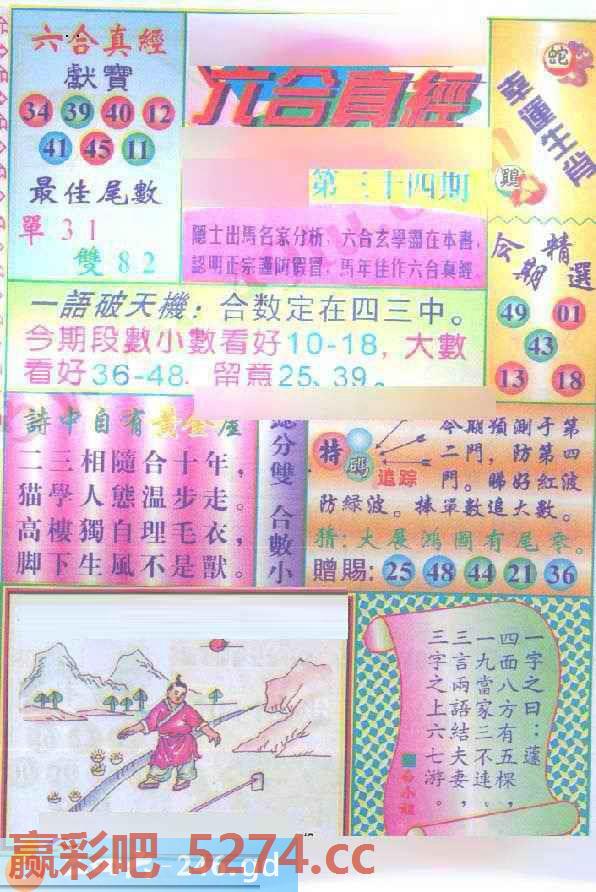 六合真經
獻寶
34 39 40 12
41 45 11
最佳尾數
單31
雙82
六合真經
第三十四期
隱士出馬名家分析，六合玄學盡在本書，
認明正宗謹防假冒，馬年佳作六合真經。
蛇
幸運生肖
鷄
今期精選
49 01
43
13 18
一語破天機：合数定在四三中。
今期段數小數看好10-18，大數
看好36-48，留意25、39。
詩中自有黃金屋
二三相隨合十年，
猫學人態温步走。
高樓獨自理毛衣，
脚下生風不是獸。
總分雙 合數小
特碼追踪
今期須測于第
二門，防第四
門。睇好紅波
防緑波。捧單數追大數。
猜：大展鴻圖有尾零。
贈賜：25 48 44 21 36
一字之曰：蓬
四面八方有五棵，
一九當家三不連。
三言兩語結夫妻，
三字之上六七游。
赢彩吧 5274.cc
246.gd